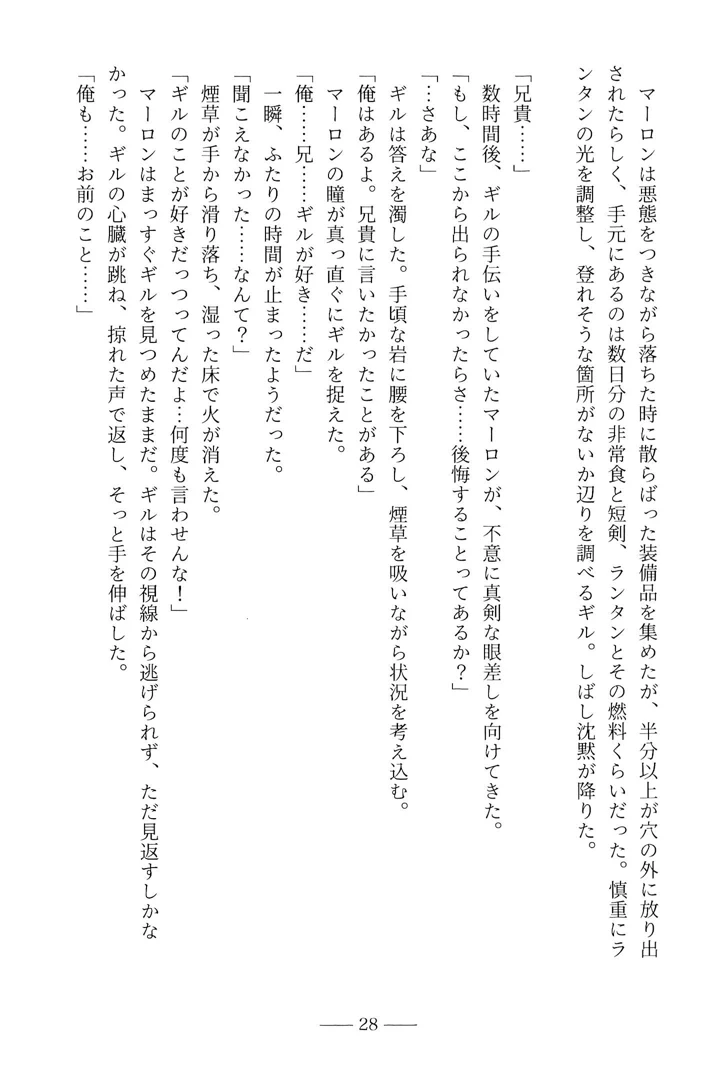 マーロンは悪態をつきながら落ちた時に散らばった装備品を集めたが、半分以上が穴の外に放り出
されたらしく、手元にあるのは数日分の非常食と短剣、ランタンとその燃料くらいだった。慎重にラ
ンタンの光を調整し、登れそうな箇所がないか辺りを調べるギル。しばし沈黙が降りた。
「兄貴……」
数時間後、ギルの手伝いをしていたマーロンが、不意に真剣な眼差しを向けてきた。
「もし、ここから出られなかったらさ……後悔することってあるか？」
「…さあな」
ギルは答えを濁した。手頃な岩に腰を下ろし、煙草を吸いながら状況を考え込む。
「俺はあるよ。兄貴に言いたかったことがある」
マーロンの瞳が真っ直ぐにギルを捉えた。
「俺……兄……ギルが好き……だ」
一瞬、ふたりの時間が止まったようだった。
「聞こえなかった……なんて？」
煙草が手から滑り落ち、湿った床で火が消えた。
「ギルのことが好きだっつってんだよ…何度も言わせんな！」
マーロンはまっすぐギルを見つめたままだ。ギルはその視線から逃げられず、ただ見返すしかな
かった。ギルの心臓が跳ね、掠れた声で返し、そっと手を伸ばした。
「俺も……お前のこと……」
28